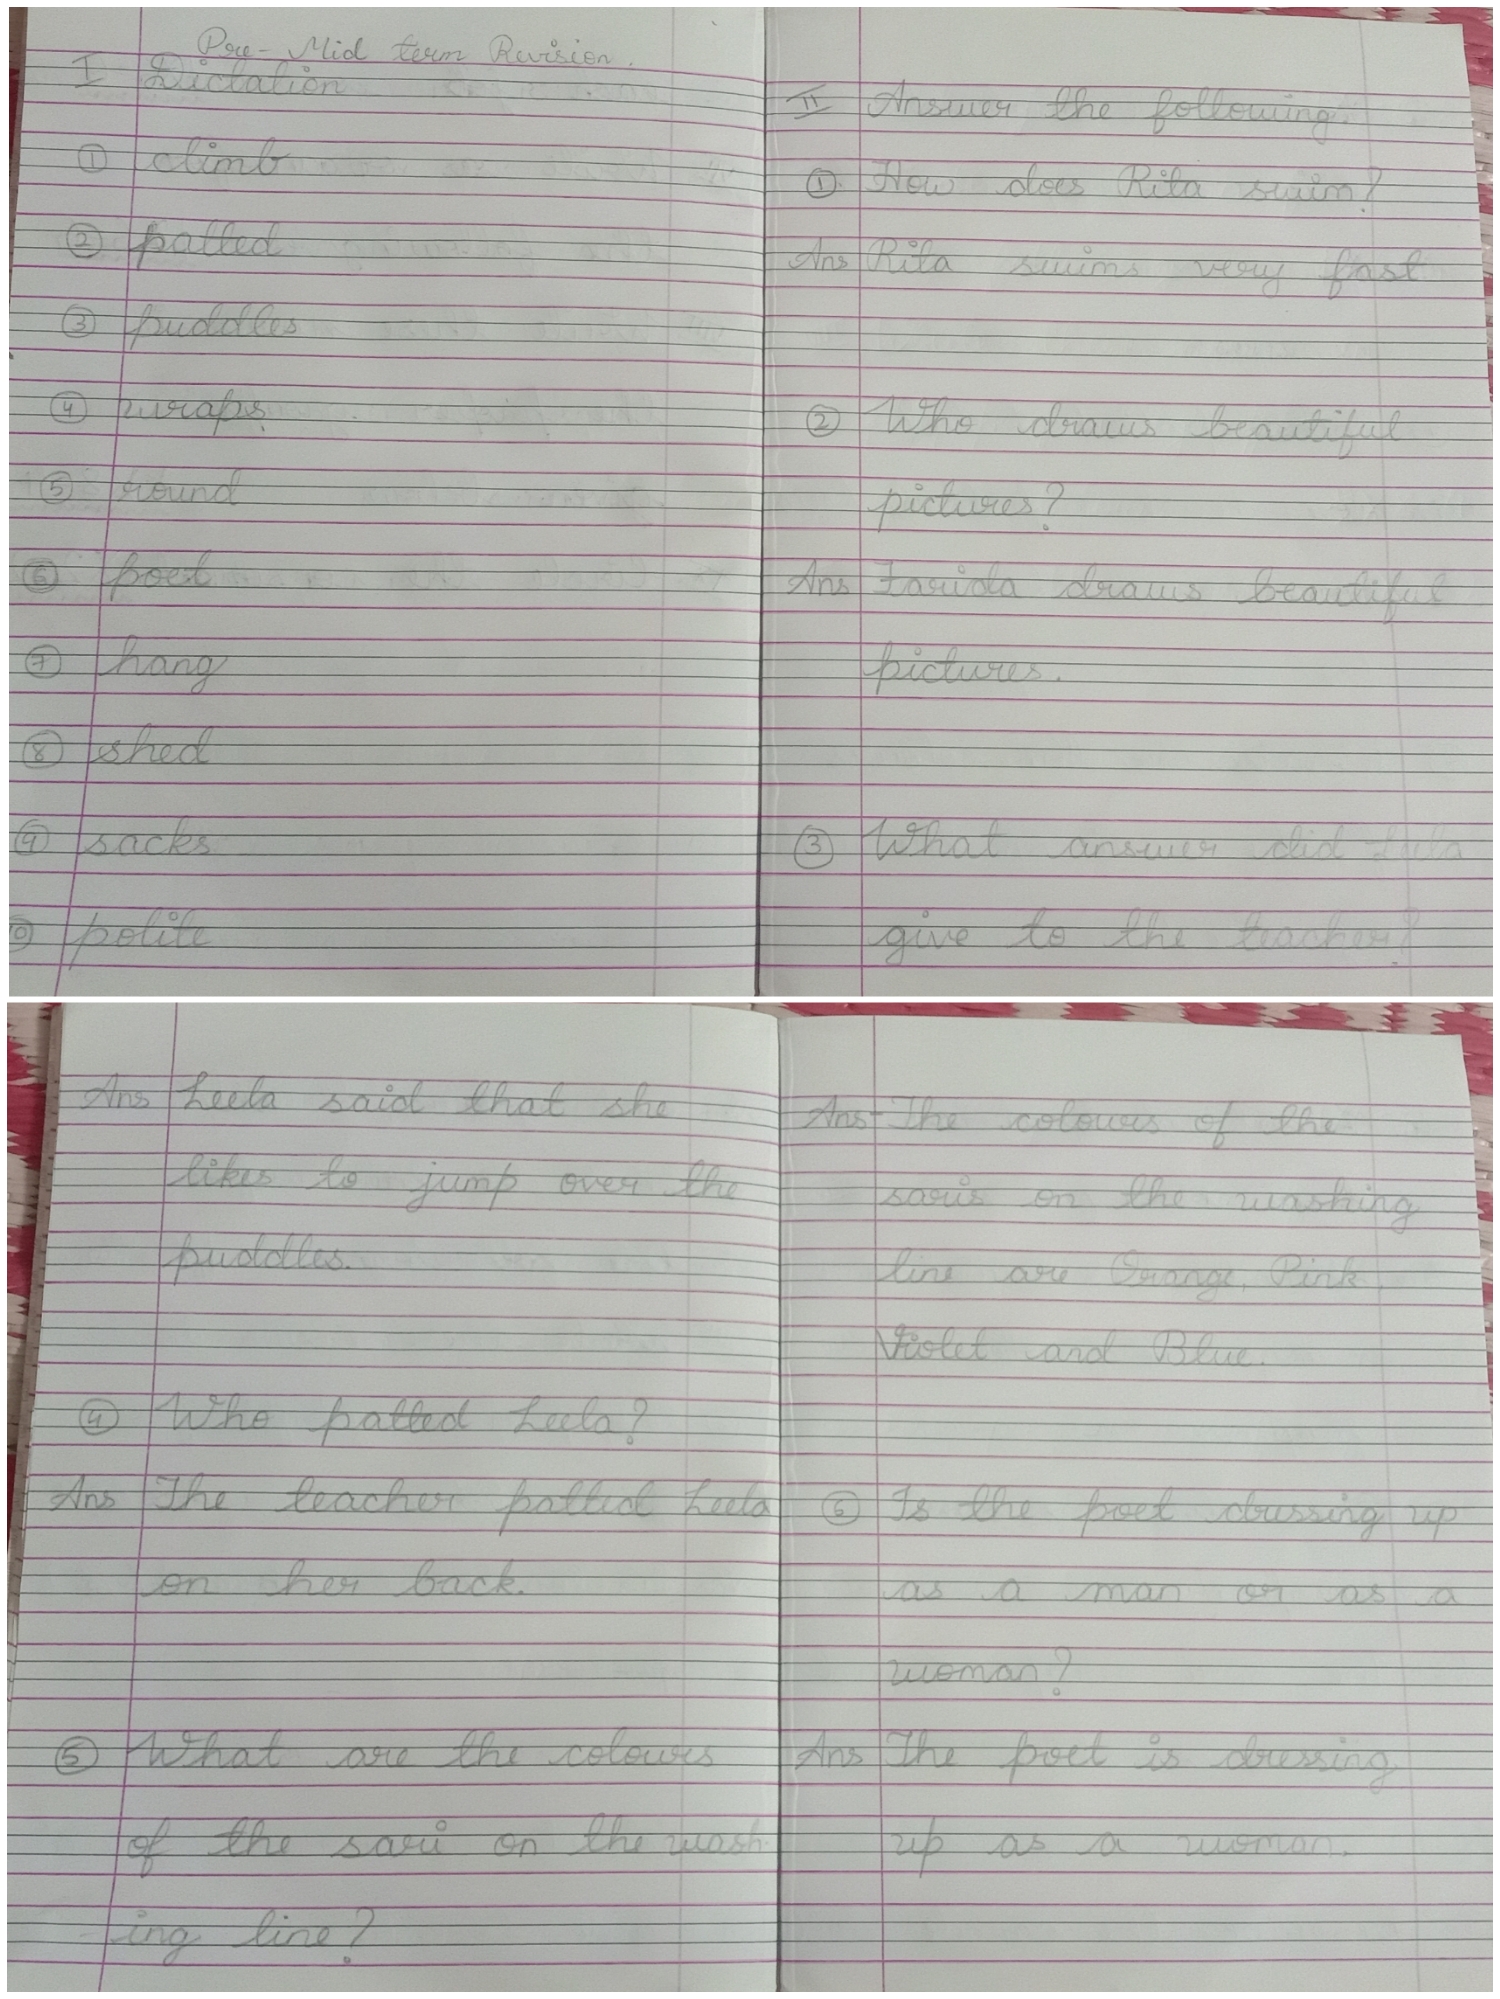 Pre-Mid term Revision.
I Dictation
① climb
② patted
③ puddles
④ wraps.
⑤ round
⑥ poet
⑦ hang
⑧ shed
⑨ sacks
polite
II Answer the following.
① How does Rita swim?
Ans Rita swims very fast
② Who draws beautiful
pictures?
Ans Farida draws beautiful
pictures.
③ What answer did Leela
give to the teacher?
Ans Leela said that she
likes to jump over the
puddles.
④ Who patted Leela?
Ans The teacher patted Leela
on her back.
⑤ What are the colours
of the sari on the wash-
ing line?
Ans The colours of the
saris on the washing
line are Orange, Pink,
Violet and Blue.
⑥ Is the poet dressing up
as a man or as a
woman?
Ans The poet is dressing
up as a woman.